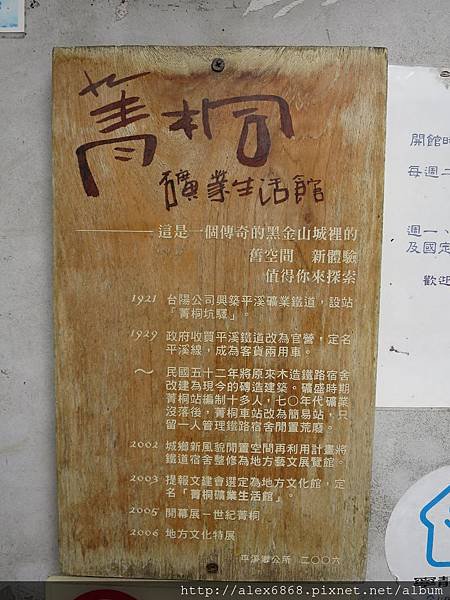 菁桐
礦業生活館
這是一個傳奇的黑金山城裡的
舊空間 新體驗
值得你來探索
1921 台陽公司興築平溪礦業鐵道，設站
「菁桐坑驛」。
1929 政府收買平溪鐵道改為官營，定名
平溪線，成為客貨兩用車。
～ 民國五十二年將原來木造鐵路宿舍
改建為現今的磚造建築。礦盛時期
菁桐站編制十多人，七〇年代礦業
沒落後，菁桐車站改為簡易站，只
留一人管理鐵路宿舍閒置荒廢。
2002 城鄉新風貌閒置空間再利用計畫將
鐵道宿舍整修為地方藝文展覽館。
2003 提報文建會選定為地方文化館，定
名「菁桐礦業生活館」。
2005 開幕展－世紀菁桐
2006 地方文化特展
平溪鄉公所 二〇〇六
開館時
每週二
週一、
及國定
歡迎
http://alex6868.pixnet.net/album